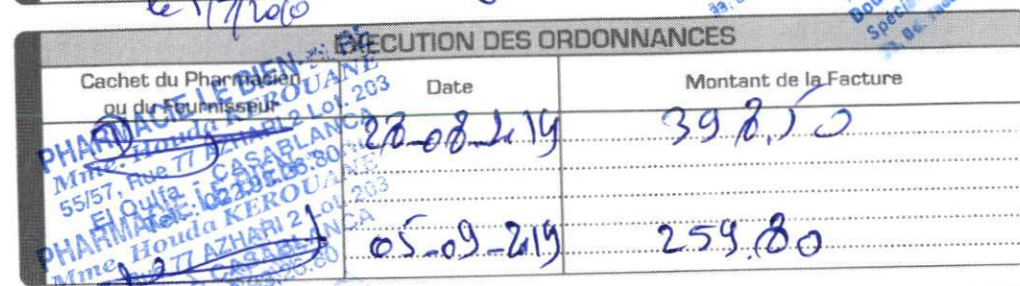 EXECUTION DES ORDONNANCES
Cachet du Pharmacien
ou du Fournisseur
Date
Montant de la Facture
PHARMACIE LE BIEN
Mme. Houda KEROUANE
55/57, Rue 77 AZHARI 2 Lot. 203
El Oulfa - CASABLANCA
28-08-219
398,50
PHARMACIE LE BIEN
Mme. Houda KEROUANE
Rue 77 AZHARI 2 Lot. 203
CASABLANCA
05-09-219
259,80